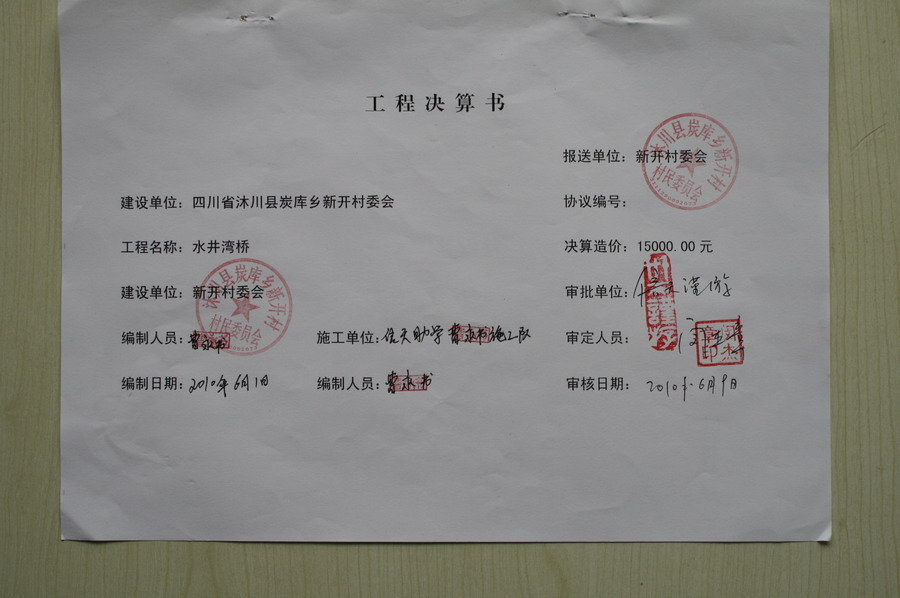 工程决算书
报送单位：新开村委会
沐川县炭库乡新开村
村民委员会
建设单位：四川省沐川县炭库乡新开村委会
协议编号：
工程名称：水井湾桥
决算造价：15000.00元
建设单位：新开村委会
沐川县炭库乡新开村
村民委员会
审批单位：
编制人员：曹永书
施工单位：任天助学曹永书施工队
审定人员：
编制日期：2010年6月1日
编制人员：曹永书
审核日期：2010年6月9日